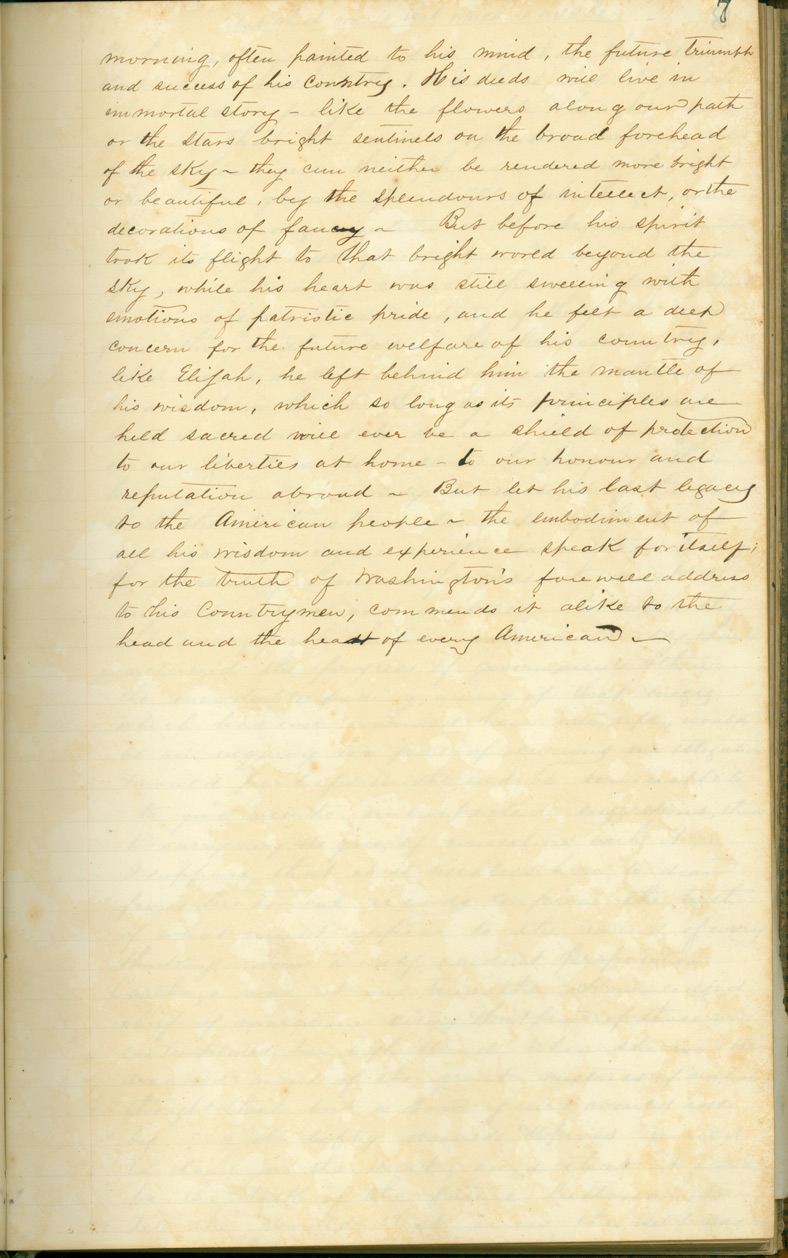 7
morning, often painted to his mind, the future triumph
and success of his country. His deeds will live in
immortal story - like the flowers along our path
or the stars bright sentinels on the broad forehead
of the sky - they can neither be rendered more bright
or beautiful, by the splendours of intellect, or the
decorations of fancy - But before his spirit
took its flight to that bright world beyond the
sky, while his heart was still swelling with
emotions of patriotic pride, and he felt a deep
concern for the future welfare of his country,
like Elijah, he left behind him the mantle of
his wisdom, which so long as its principles are
held sacred will ever be a shield of protection
to our liberties at home - to our honour and
reputation abroad - But let his last legacy
to the American people - the embodiment of
all his wisdom and experience speak for itself;
for the truth of Washington's farewell address
to his Countrymen, commends it alike to the
head and the heart of every American -